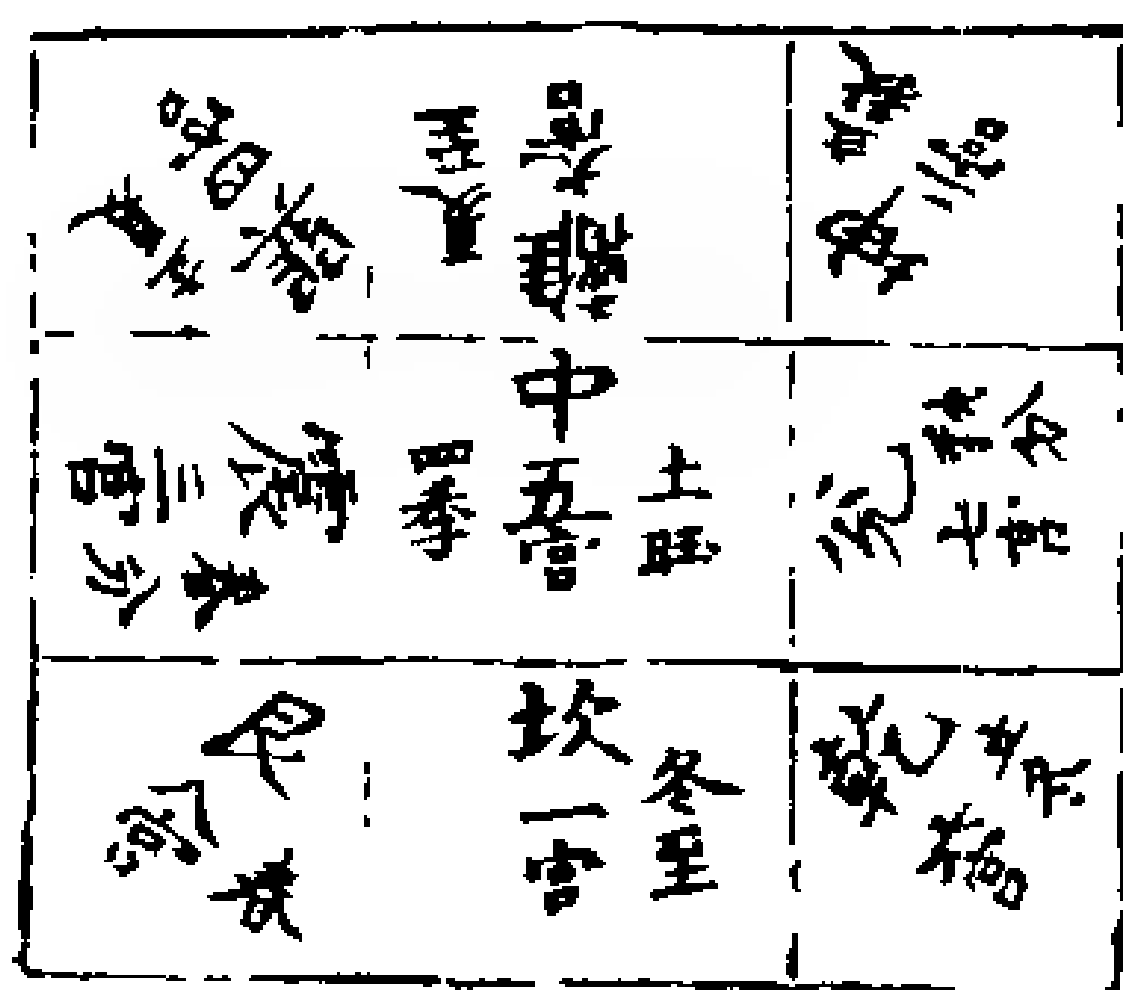 巽四宮
立夏
離九宮
夏至
坤二宮
立秋
震三宮
春分
中五宮
四季
土旺
兌七宮
秋分
艮八宮
立春
坎一宮
冬至
乾六宮
立冬